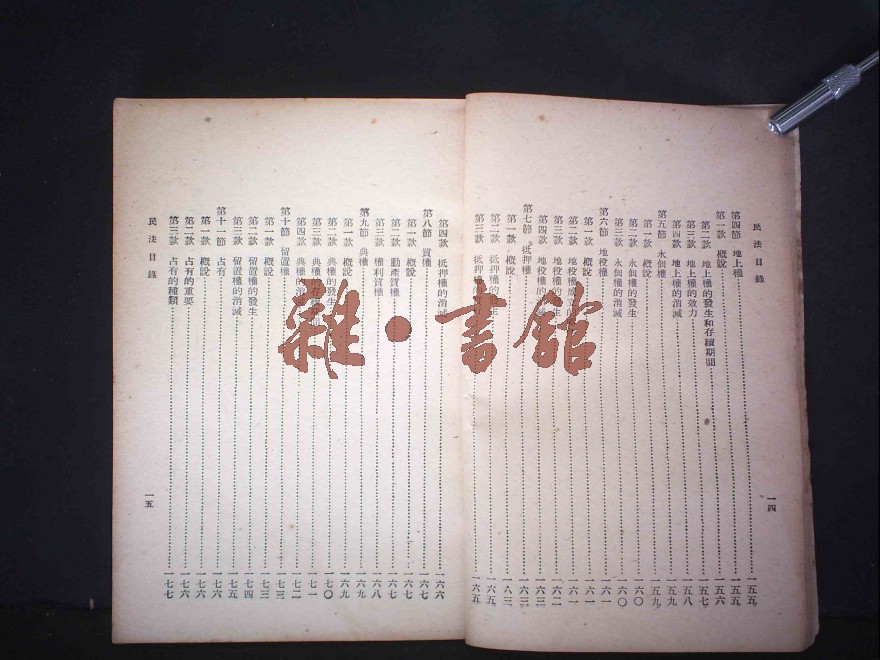 民法目錄
一四
第四節 地上權 一五五
第一款 概說 一五五
第二款 地上權的發生和存續期間 一五六
第三款 地上權的效力 一五七
第四款 地上權的消滅 一五八
第五節 永佃權 一五九
第一款 概說 一五九
第二款 永佃權的發生 一六〇
第三款 永佃權的消滅 一六〇
第六節 地役權 一六一
第一款 概說 一六一
第二款 地役權 一六一
第三款 地役權的 一六二
第四款 地役權的消滅 一六三
第七節 抵押權 一六三
第一款 概說 一六三
第二款 抵押權的 一六五
第三款 抵押權 一六五
第四款 抵押權的消滅 一六六
第八節 質權 一六七
第一款 概說 一六七
第二款 動產質權 一六七
第三款 權利質權 一六八
第九節 典權 一六九
第一款 概說 一六九
第二款 典權的發生 一七〇
第三款 典權的存 一七一
第四款 典權的消滅 一七二
第十節 留置權 一七三
第一款 概說 一七三
第二款 留置權的發生 一七四
第三款 留置權的消滅 一七五
第十一節 占有 一七六
第一款 概說 一七六
第二款 占有的重要 一七六
第三款 占有的種類 一七七
民法目錄
一五
雜·書館